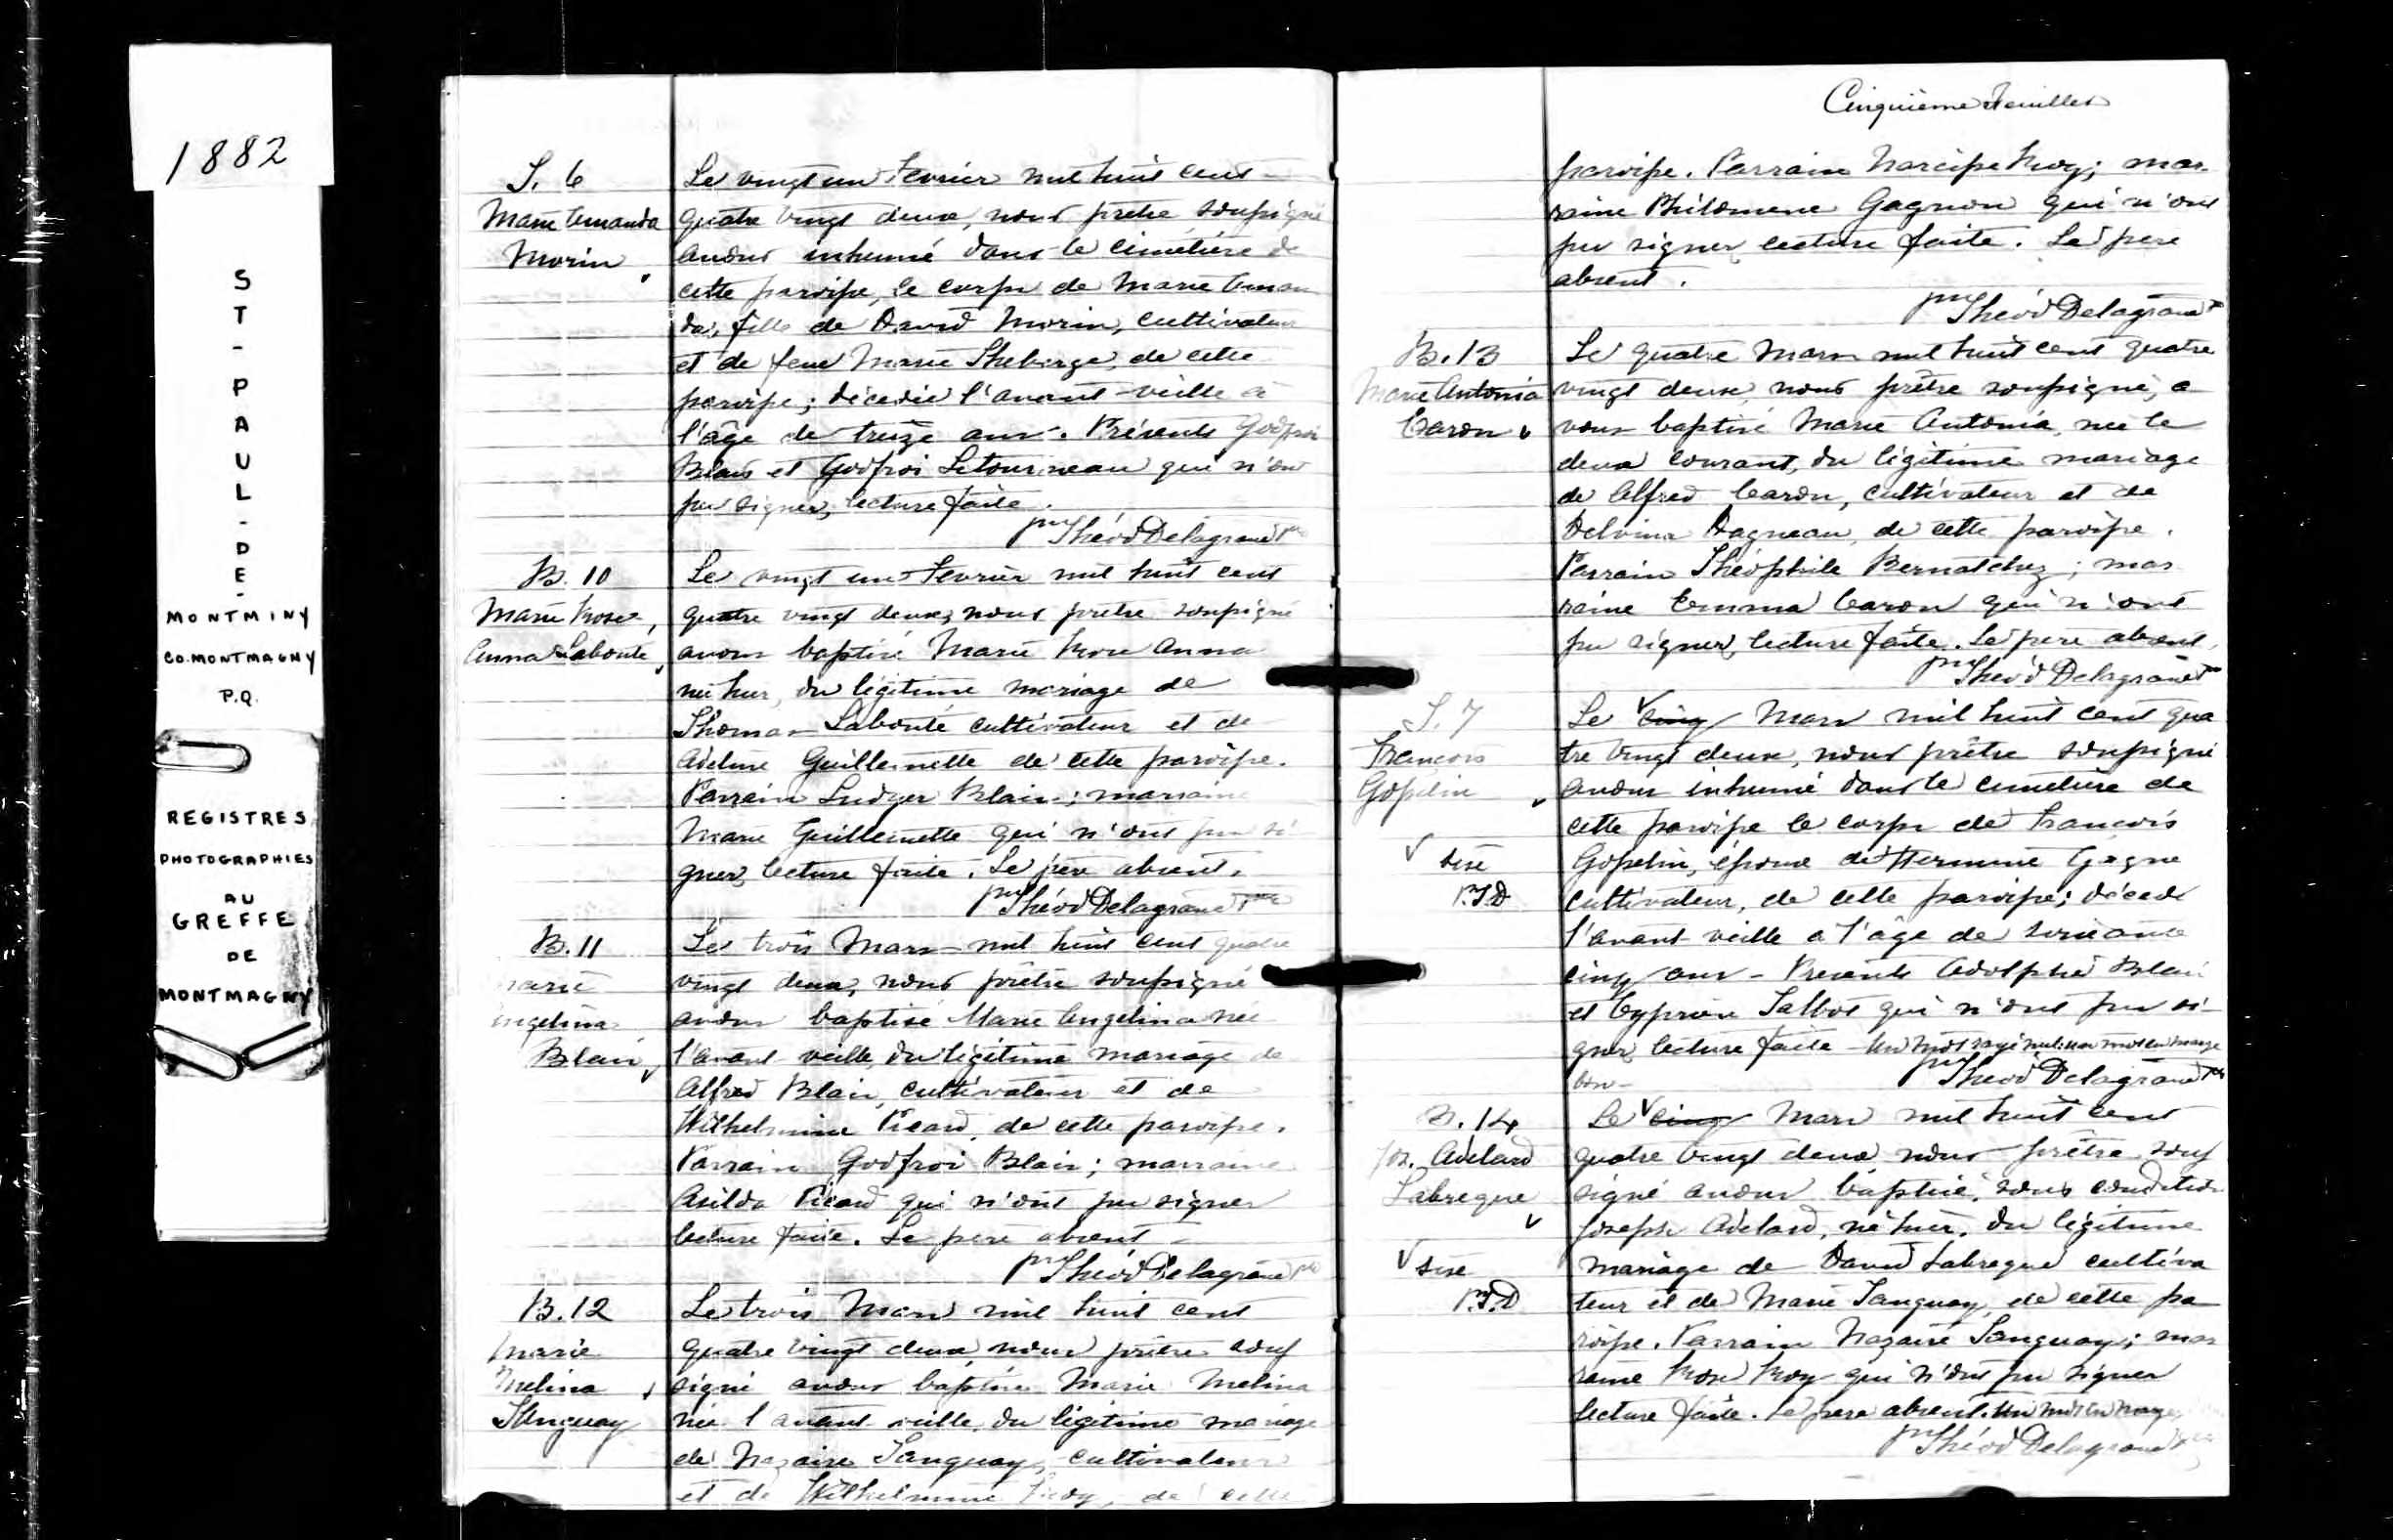 1882
ST-PAUL-DE-
MONTMINY
CO. MONTMAGNY
P.Q.
REGISTRES
PHOTOGRAPHIES
AU
GREFFE
DE
MONTMAGNY
S. 6
Marie Amanda
Morin
Le vingt un Fevrier mil huit cent
quatre vingt deux, nous prêtre soussigné
avons inhumé dans le cimetière de
cette paroisse, le corps de Marie Aman
da, fille de David Morin, cultivateur
et de feue Marie Theberge, de cette
paroisse; décédée l'avant-veille à
l'âge de treize ans. Présents Godfroi
Blais et Godfroi Letourneau qui n'ont
pu signer, lecture faite.
Théod Delagrave ptre
B. 10
Marie Rose
Anna Labonté
Le vingt un Fevrier mil huit cent
quatre vingt deux, nous prêtre soussigné
avons baptisé Marie Rose Anna
née hier, du légitime mariage de
Thomas Labonté cultivateur et de
Adeline Guillemette de cette paroisse.
Parrain Ludger Blais; marraine
Marie Guillemette qui n'ont pu si
gner, lecture faite. Le père absent.
Théod Delagrave ptre
B. 11
Marie
Angelina
Blais
Le trois Mars mil huit cent quatre
vingt deux, nous prêtre soussigné
avons baptisé Marie Angelina née
l'avant-veille, du légitime mariage de
Alfred Blais, cultivateur et de
Wilhelmine Picard, de cette paroisse.
Parrain Godfroi Blais; marraine
Asilda Picard qui n'ont pu signer
lecture faite. Le père absent
Théod Delagrave ptre
B. 12
Marie
Melina
Tanguay
Le trois Mars mil huit cent
quatre vingt deux, nous prêtre sous
signé avons baptisé Marie Melina
née l'avant-veille, du légitime mariage
de Nazaire Tanguay, cultivateur
et de Wilhelmine Roy, de cette
Cinquième Feuillet
paroisse. Parrain Narcisse Roy; mar
raine Philomene Gagnon qui n'ont
pu signer, lecture faite. Le père
absent.
Théod Delagrave
B. 13
Marie Antonia
Caron
Le quatre Mars mil huit cent quatre
vingt deux, nous prêtre soussigné, a
vons baptisé Marie Antonia, née le
deux courant, du légitime mariage
de Alfred Caron, cultivateur et de
Delvina Dagneau, de cette paroisse.
Parrain Théophile Bernatchez; mar
raine Emma Caron qui n'ont
pu signer, lecture faite. Le père absent.
Théod Delagrave
S. 7
Francois
Gosselin
√ Sise
P.T.D
Le √ cinq Mars mil huit cent qua
tre vingt deux, nous prêtre soussigné
avons inhumé dans le cimetière de
cette paroisse le corps de Francois
Gosselin, époux de Hermine Gagne
cultivateur, de cette paroisse; décédé
l'avant-veille a l'âge de soixante
cinq ans - Presents Adolphe Blais
et Cyprien Talbot qui n'ont pu si-
gner, lecture faite - Un mot rayé nul: un mot en marge
bon -
Théod Delagrave ptre
B. 14
Jos. Adelard
Labreque
√ Sise
P.T.D
Le √ cinq Mars mil huit cent
quatre vingt deux nous prêtre sous
signé avons baptisé, sous condition
Joseph Adelard, né hier, du légitime
mariage de David Labreque cultiva
teur et de Marie Tanguay, de cette pa
roisse. Parrain Nazaire Tanguay; mar
raine Rose Roy qui n'ont pu signer
lecture faite. Le père absent. Un mot en marge
Théod Delagrave